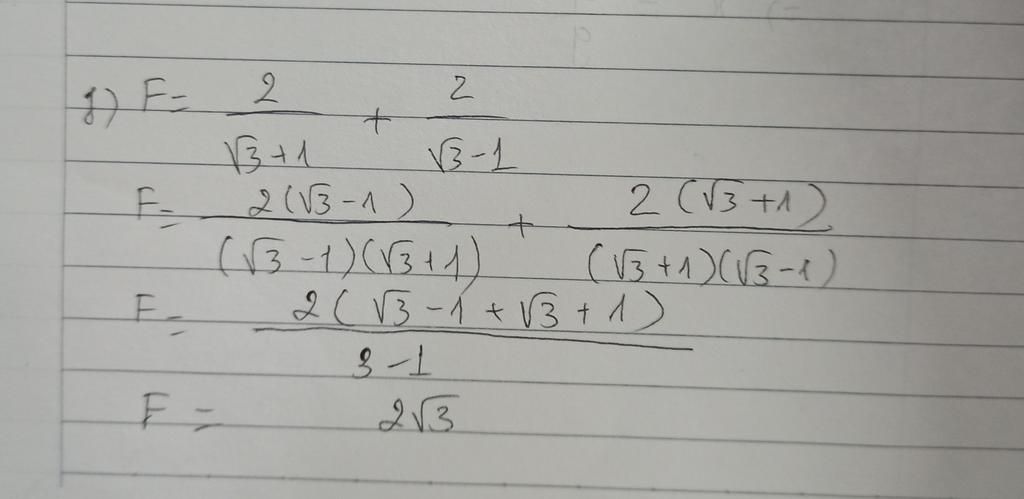 f) F = 2/(√3+1) + 2/(√3-1)
F = 2(√3-1)/((√3-1)(√3+1)) + 2(√3+1)/((√3+1)(√3-1))
F = 2(√3-1+√3+1)/(3-1)
F = 2√3